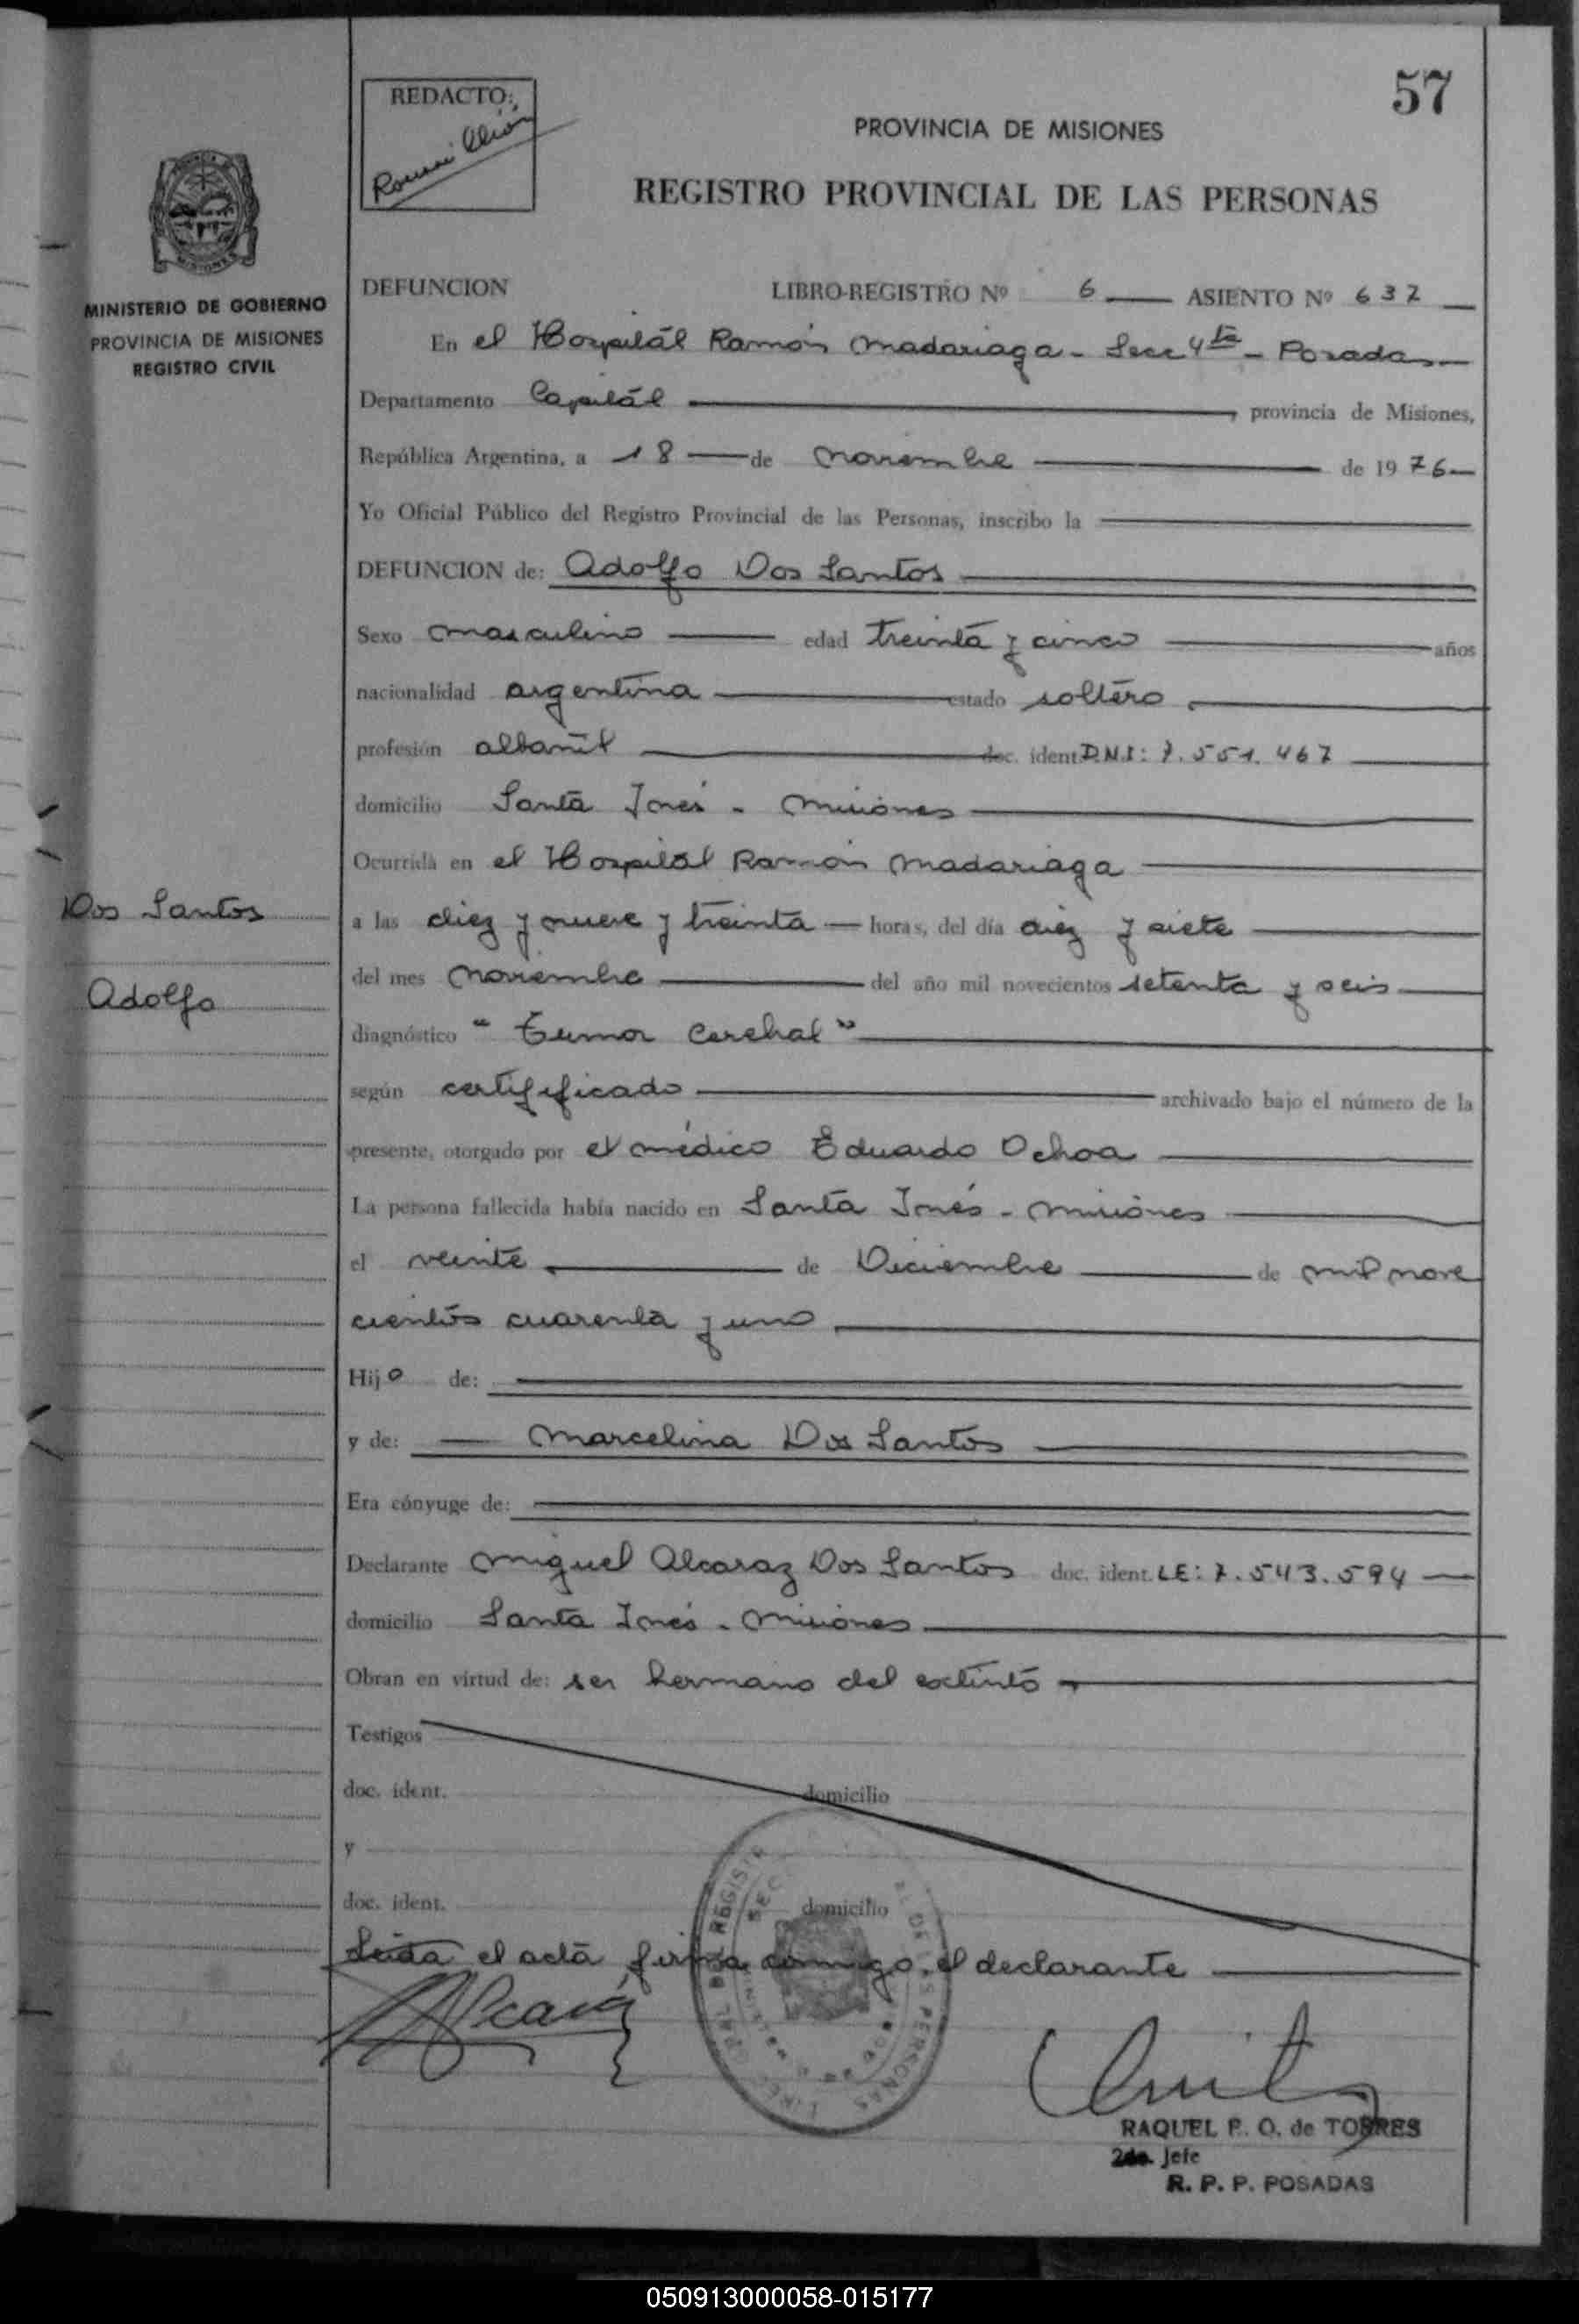 57
REDACTO:
PROVINCIA DE MISIONES
REGISTRO PROVINCIAL DE LAS PERSONAS
MINISTERIO DE GOBIERNO
PROVINCIA DE MISIONES
REGISTRO CIVIL
DEFUNCION LIBRO-REGISTRO Nº 6 ASIENTO Nº 637
En el Hospitál Ramón Madariaga - Secc 4ta - Posadas
Departamento Capitál, provincia de Misiones,
República Argentina, a 18 de Noviembre de 1976
Yo Oficial Público del Registro Provincial de las Personas, inscribo la
DEFUNCION de: Adolfo Dos Santos
Sexo masculino edad treinta y cinco años
nacionalidad argentina estado soltero
profesión albañil doc. ident. D.N.I: 7.551.467
domicilio Santa Inés - Misiones
Ocurrida en el Hospital Ramón Madariaga
Dos Santos
Adolfo
a las diez y nueve y treinta horas, del día diez y siete
del mes Noviembre del año mil novecientos setenta y seis
diagnóstico "Tumor Cerebral"
según certifificado archivado bajo el número de la
presente, otorgado por el médico Eduardo Ochoa
La persona fallecida había nacido en Santa Inés - Misiones
el veinte de Diciembre de mil nove
cientos cuarenta y uno
Hijo de:
y de: Marcelina Dos Santos
Era cónyuge de:
Declarante Miguel Alcaraz Dos Santos doc. ident. LE: 7.543.594
domicilio Santa Inés - Misiones
Obran en virtud de: ser hermano del extinto
Testigos
doc. ident. domicilio
y
doc. ident. domicilio
Leida el acta firma conmigo, el declarante
RAQUEL P. O. de TORRES
2do. Jefe
R. P. P. POSADAS
050913000058-015177